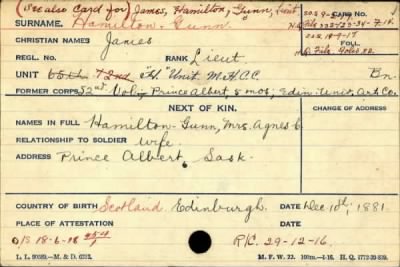 (See also card for James, Hamilton, Gunn, Lieut
SURNAME. Hamilton-Gunn.
CHRISTIAN NAMES James
FOLL.
REGL. NO. RANK Lieut.
UNIT 65th 72nd "H" Unit M.H.C.C. Bn.
FORMER CORPS 52nd Vol. Prince Albert 5 mos; Edin. Univ. Art. Co.
NEXT OF KIN. CHANGE OF ADDRESS
NAMES IN FULL Hamilton-Gunn, Mrs. Agnes C.
RELATIONSHIP TO SOLDIER Wife.
ADDRESS Prince Albert, Sask.
COUNTRY OF BIRTH Scotland Edinburgh. DATE Dec 10th, 1881.
PLACE OF ATTESTATION DATE
O/S 18-6-16 R/C. 29-12-16.
L. L. 90589.—M. & D. 6723. M. F. W. 22. 100m.—1-16. H. Q. 1772-39-839.